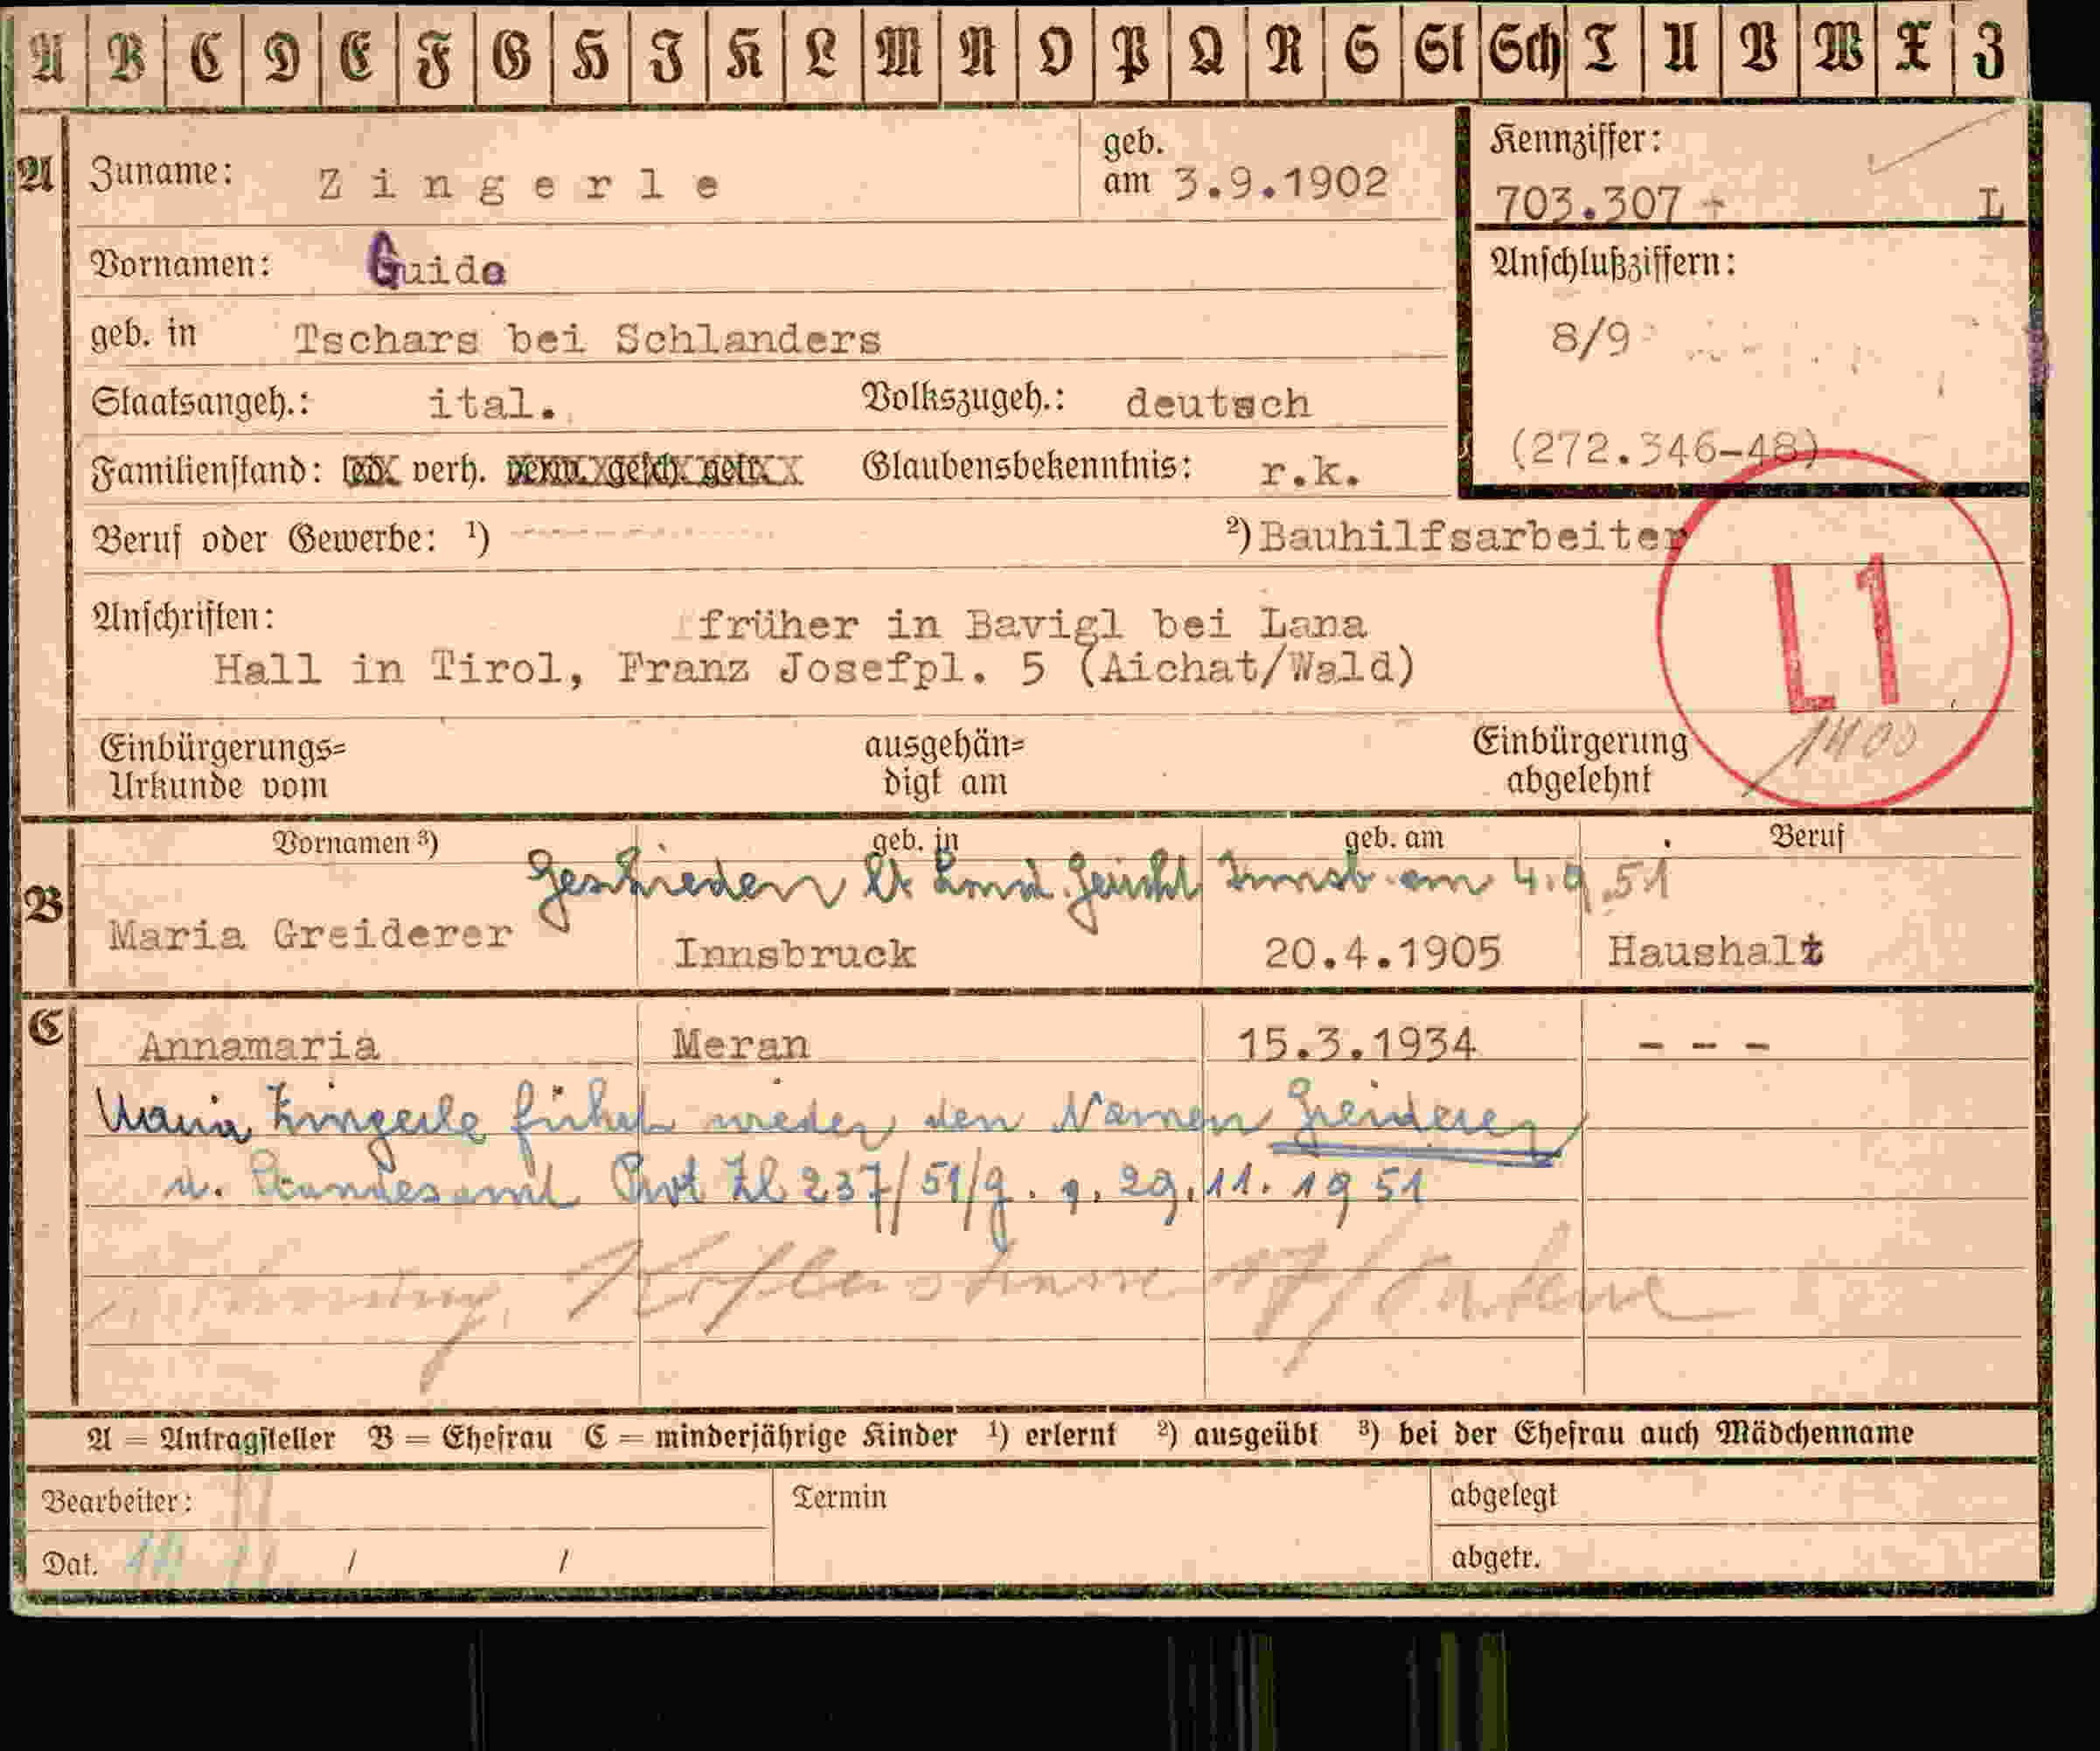 A B C D E F G H I K L M N O P Q R S St Sch T U V W X Z
A Zuname: Zingerle geb. am 3.9.1902 Kennziffer: 703.307 + L
Vornamen: Guido Anschlußziffern:
geb. in Tschars bei Schlanders 8/9
Staatsangeh.: ital. Volkszugeh.: deutsch
Familienstand: led. verh. verw. gesch. getr. Glaubensbekenntnis: r.k. (272.346-48)
Beruf oder Gewerbe: ¹) ²) Bauhilfsarbeiter
L1
Anschriften: früher in Bavigl bei Lana
Hall in Tirol, Franz Josefpl. 5 (Aichat/Wald)
Einbürgerungs= Urkunde vom ausgehän= digt am Einbürgerung abgelehnt 1400
Vornamen ³) geb. in geb. am Beruf
Geschieden lt. Land. Gericht Innsb. am 4.9.51
B Maria Greiderer Innsbruck 20.4.1905 Haushalt
C Annamaria Meran 15.3.1934 - - -
Maria Zingerle führt wieder den Namen Greiderer
Standesamt Prot Zl 237/51/g. 29.11.1951
A = Antragsteller B = Ehefrau C = minderjährige Kinder ¹) erlernt ²) ausgeübt ³) bei der Ehefrau auch Mädchenname
Bearbeiter: Termin abgelegt
Dat. / / abgetr.